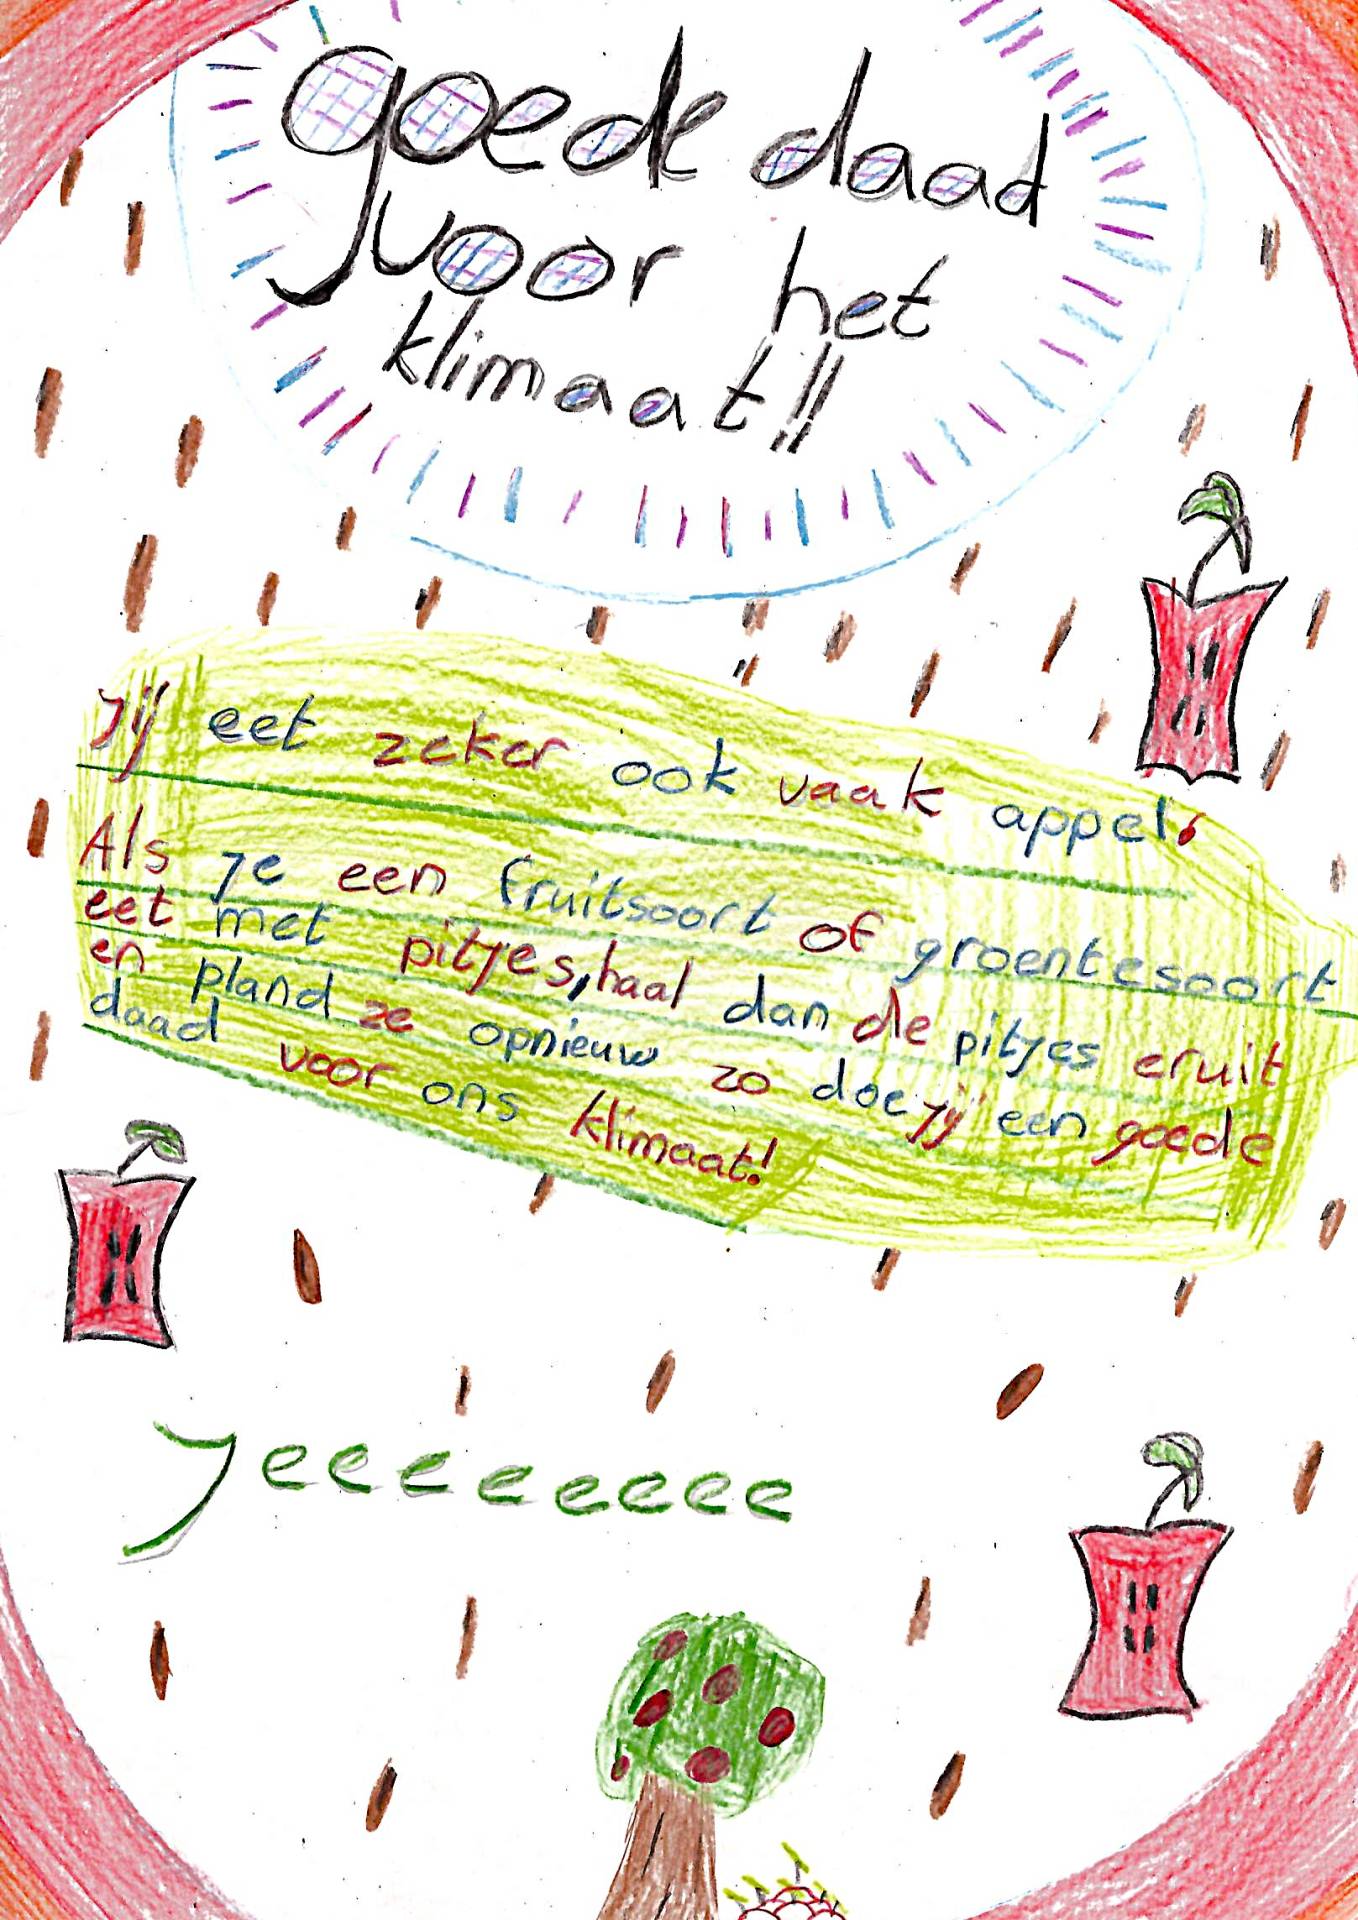 goede daad
voor het
klimaat!!
Jij eet zeker ook vaak appel!
Als je een fruitsoort of groentesoort
eet met pitjes, haal dan de pitjes eruit
en pland ze opnieuw zo doe jij een goede
daad voor ons klimaat!
Jeeeeeeee